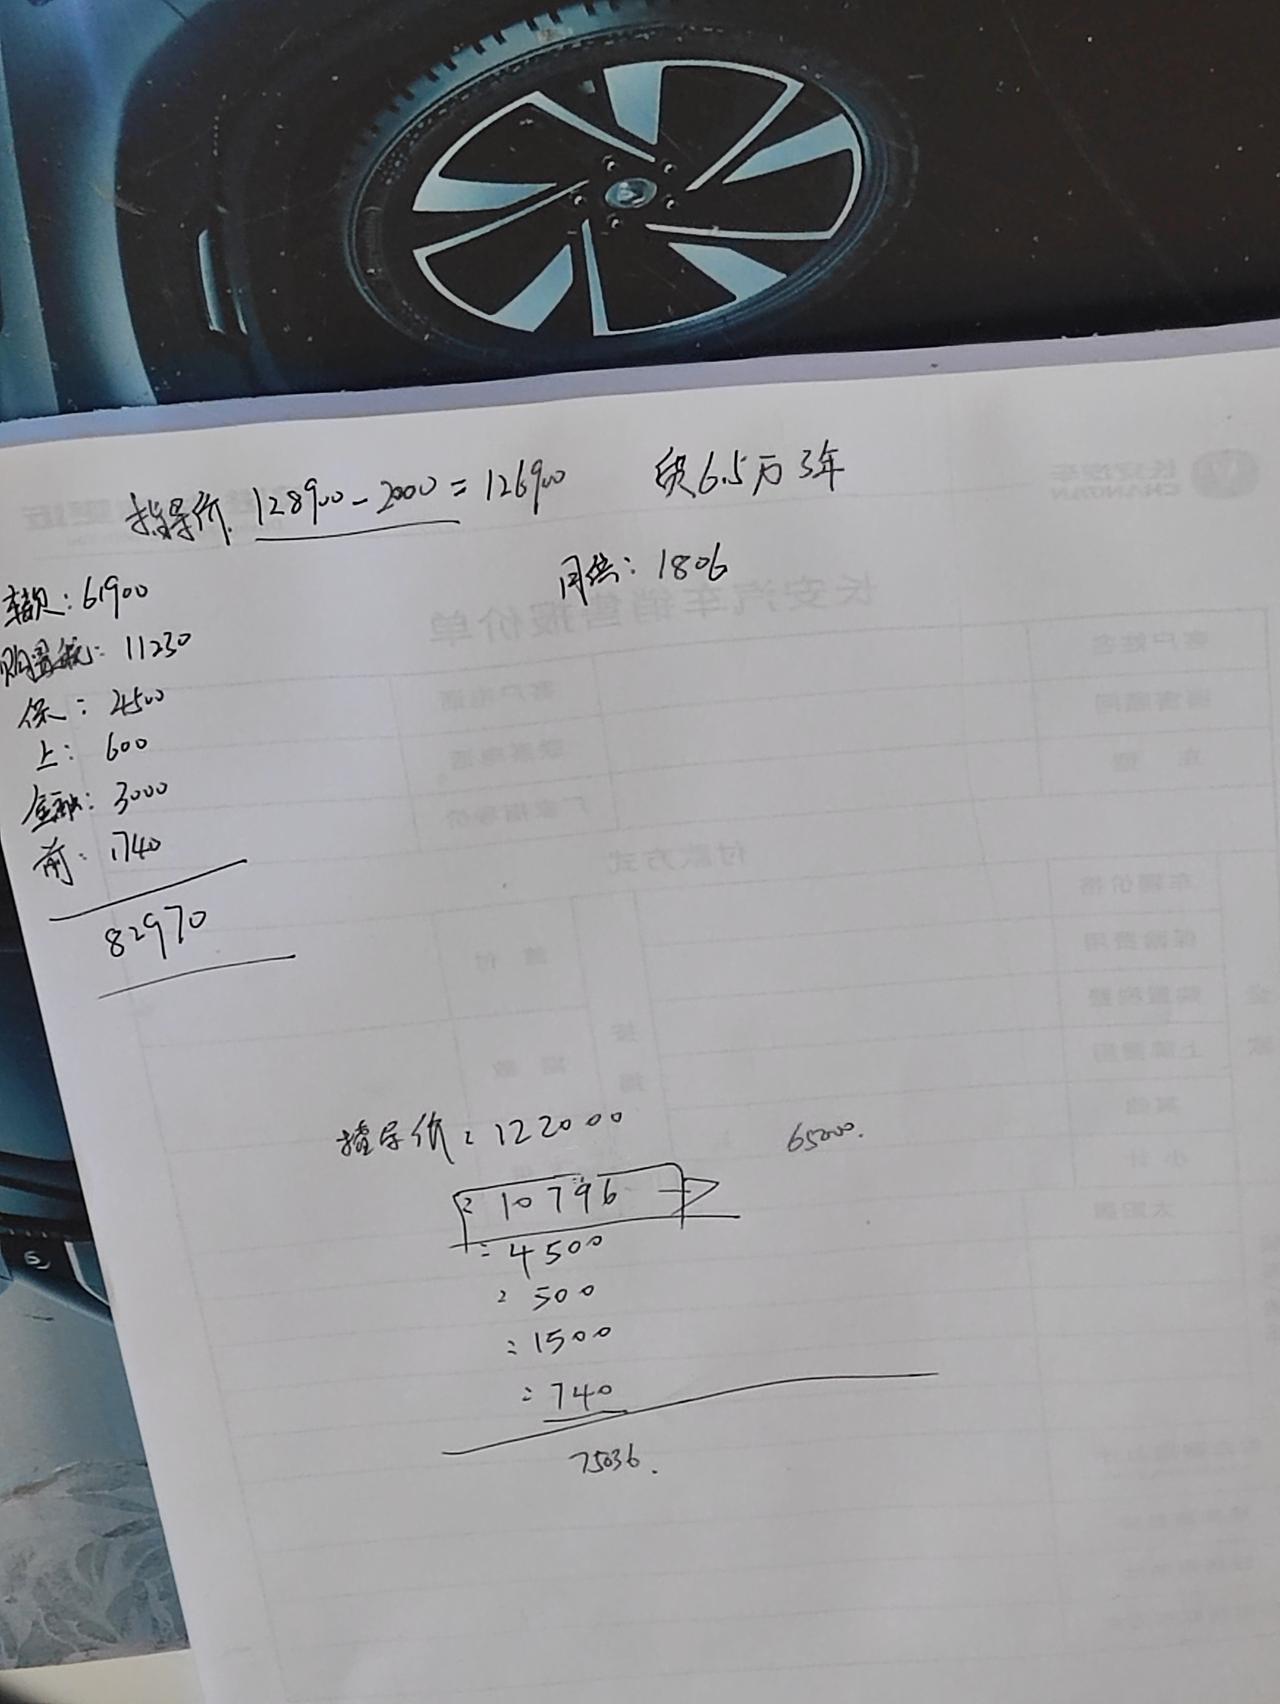 指导价. 128900-2000=126900 贷6.5万3年
月供：1806
车款：61900
购置税：11230
保：4500
上：600
金融：3000
前：1740
82970
长安汽车
CHANGAN
长安汽车销售报价单
客户姓名
客户电话
销售顾问
联系电话
车 型
厂家指导价
付款方式
车辆价格
保险费用
首 付
购置税费
上牌费用
期 数
按
揭
全
款
其他
小 计
太阳膜
指导价：122000 65000.
=10796
=4500
=500
=1500
=740
75036.